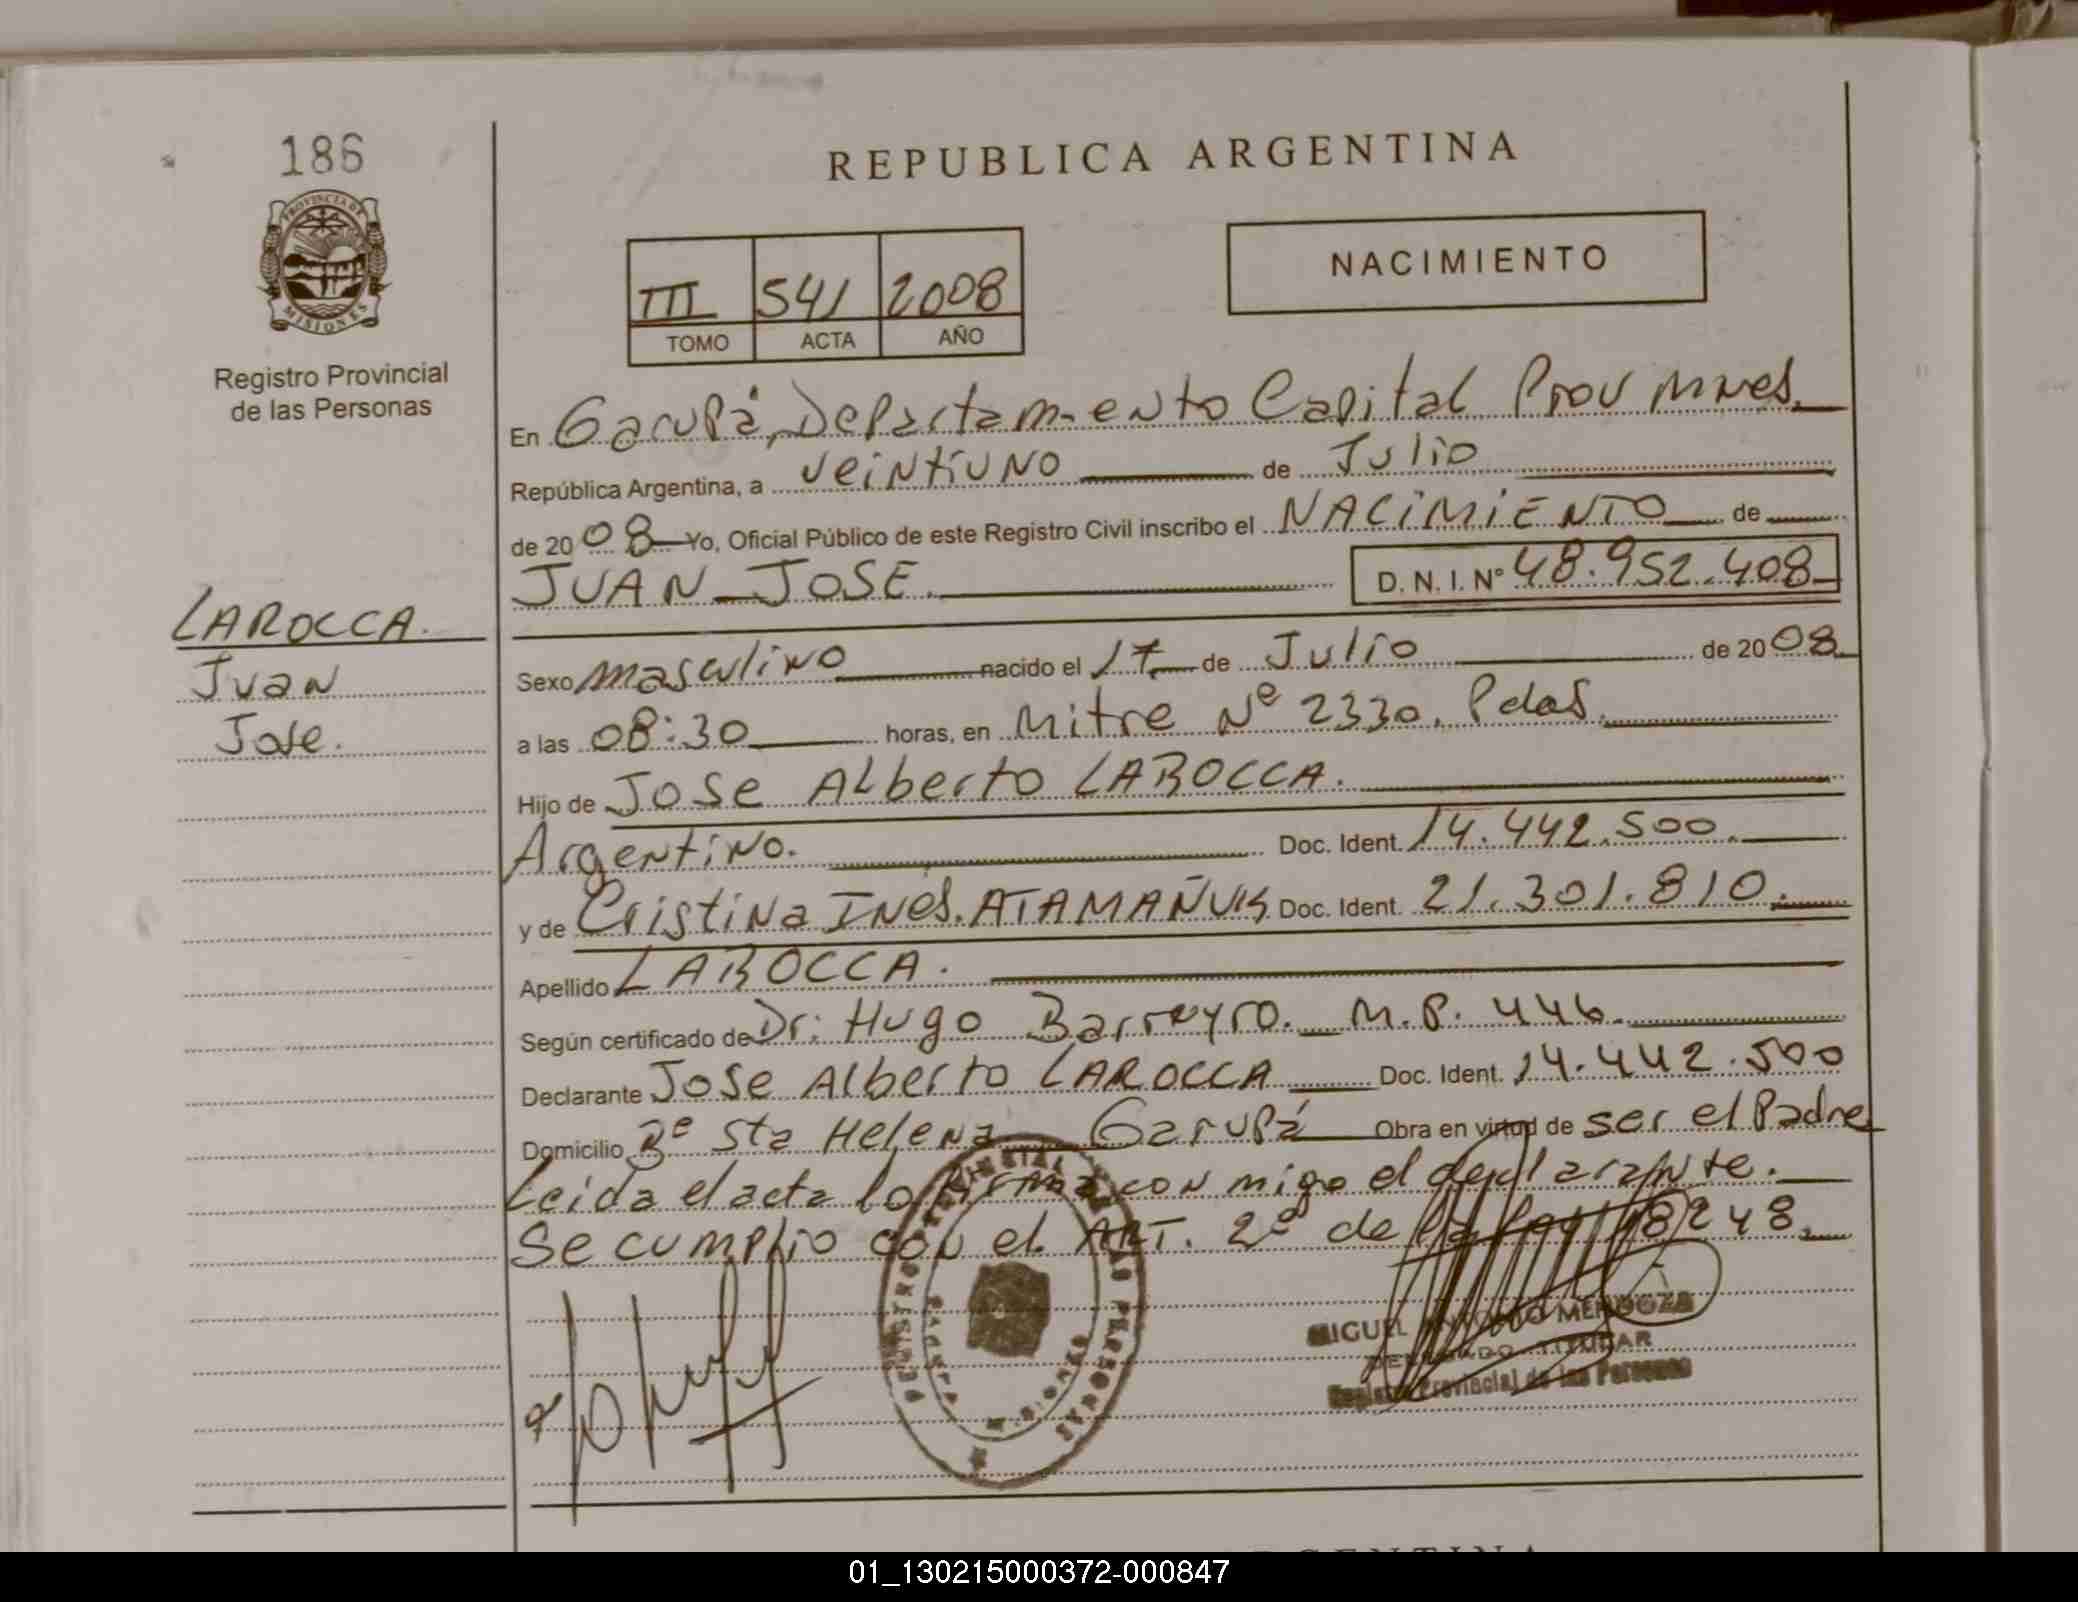 186
PROVINCIA DE
MISIONES
Registro Provincial
de las Personas
LAROCCA.
Juan
Jose.
REPUBLICA ARGENTINA
III 541 2008
TOMO ACTA AÑO
NACIMIENTO
En Garupá, Departamento Capital Prov Mnes.
República Argentina, a veintiuno de Julio
de 2008 Yo, Oficial Público de este Registro Civil inscribo el NACIMIENTO de
JUAN JOSE. D. N. I. Nº 48.952.408
Sexo masculino nacido el 17 de Julio de 2008
a las 08:30 horas, en Mitre Nº 2330. Pdas.
Hijo de Jose Alberto LAROCCA.
Argentino. Doc. Ident. 14.442.500.
y de Cristina Ines. ATAMAÑUK Doc. Ident. 21.301.810.
Apellido LAROCCA.
Según certificado de Dr: Hugo Barreyro. M.P. 446.
Declarante Jose Alberto LAROCCA Doc. Ident. 14.442.500
Domicilio Bº Sta Helena Garupá Obra en virtud de ser el Padre
Leida el acta la firma con migo el declarante.
Se cumplio con el ART. 2º de la Ley 18248.
REGISTRO PROVINCIAL DE LAS PERSONAS
MIGUEL ANTONIO MENDOZA
DELEGADO TITULAR
Registro Provincial de las Personas
ARGENTINA
01_130215000372-000847